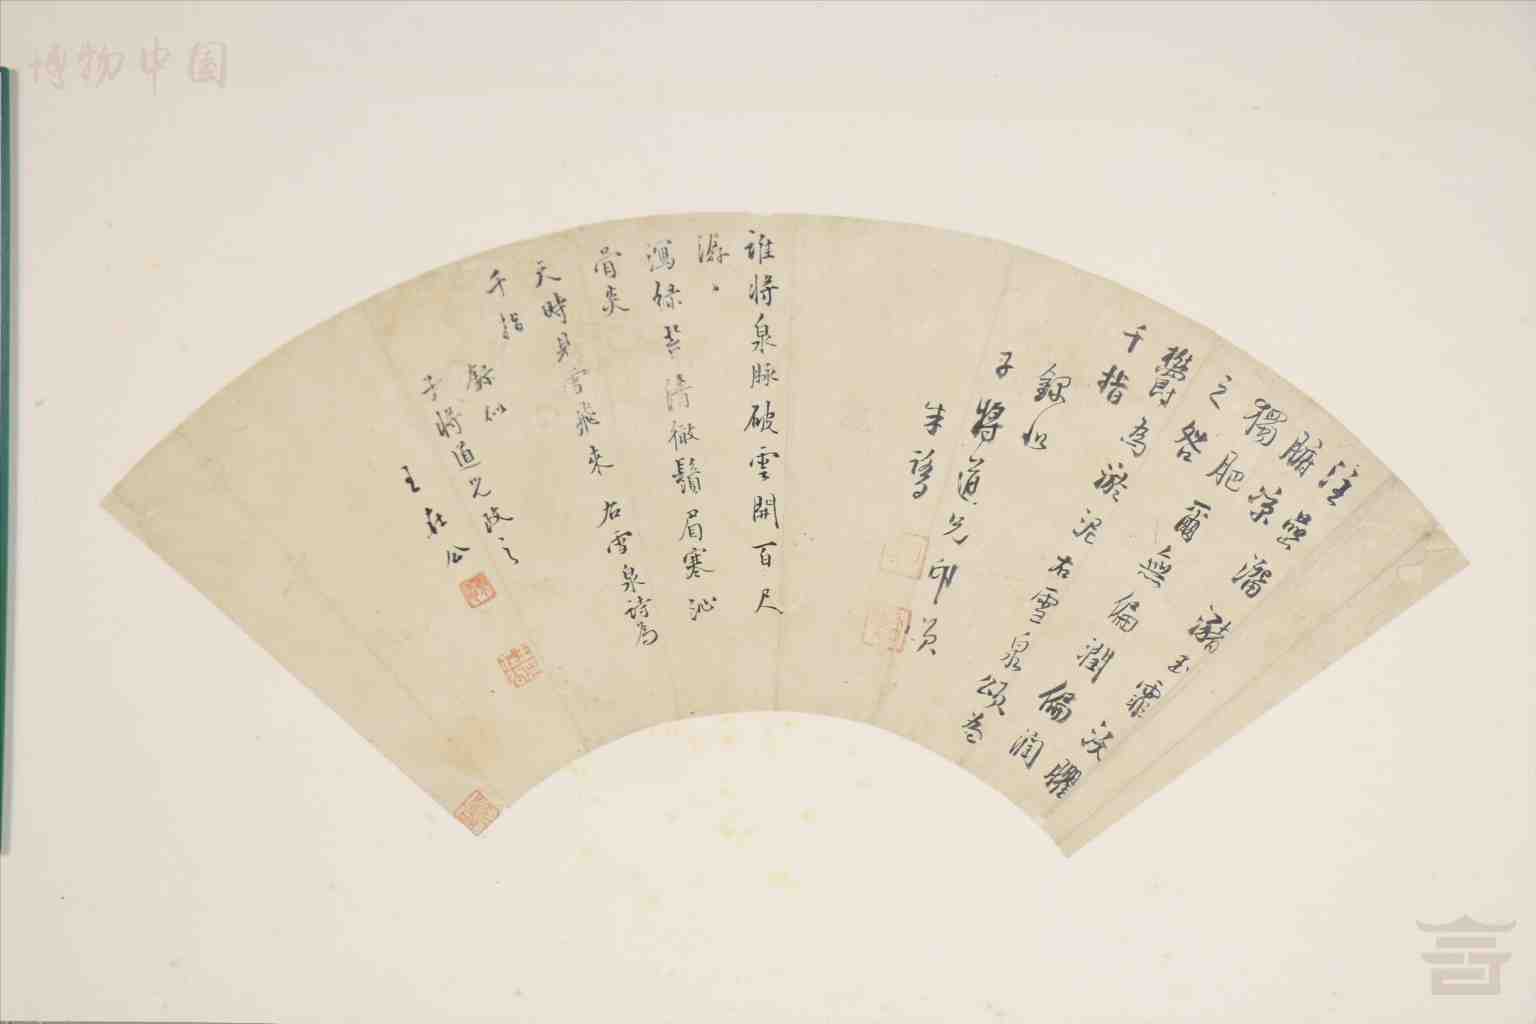 博物中国
注壘溜瀦玉霏沃臞
腑涼
獨肥爾無偏潤偏潤
之咎
鬱為淤泥右雪泉頌為
千指
錄似
子將道兄印
朱鷺
誰將泉脉破雲開百尺
潺〻
瀉綠苔清徹鬚眉寒沁
骨炎
天時見雪飛來 右雪泉詩為
千指
錄似
子將道兄政之
王在公